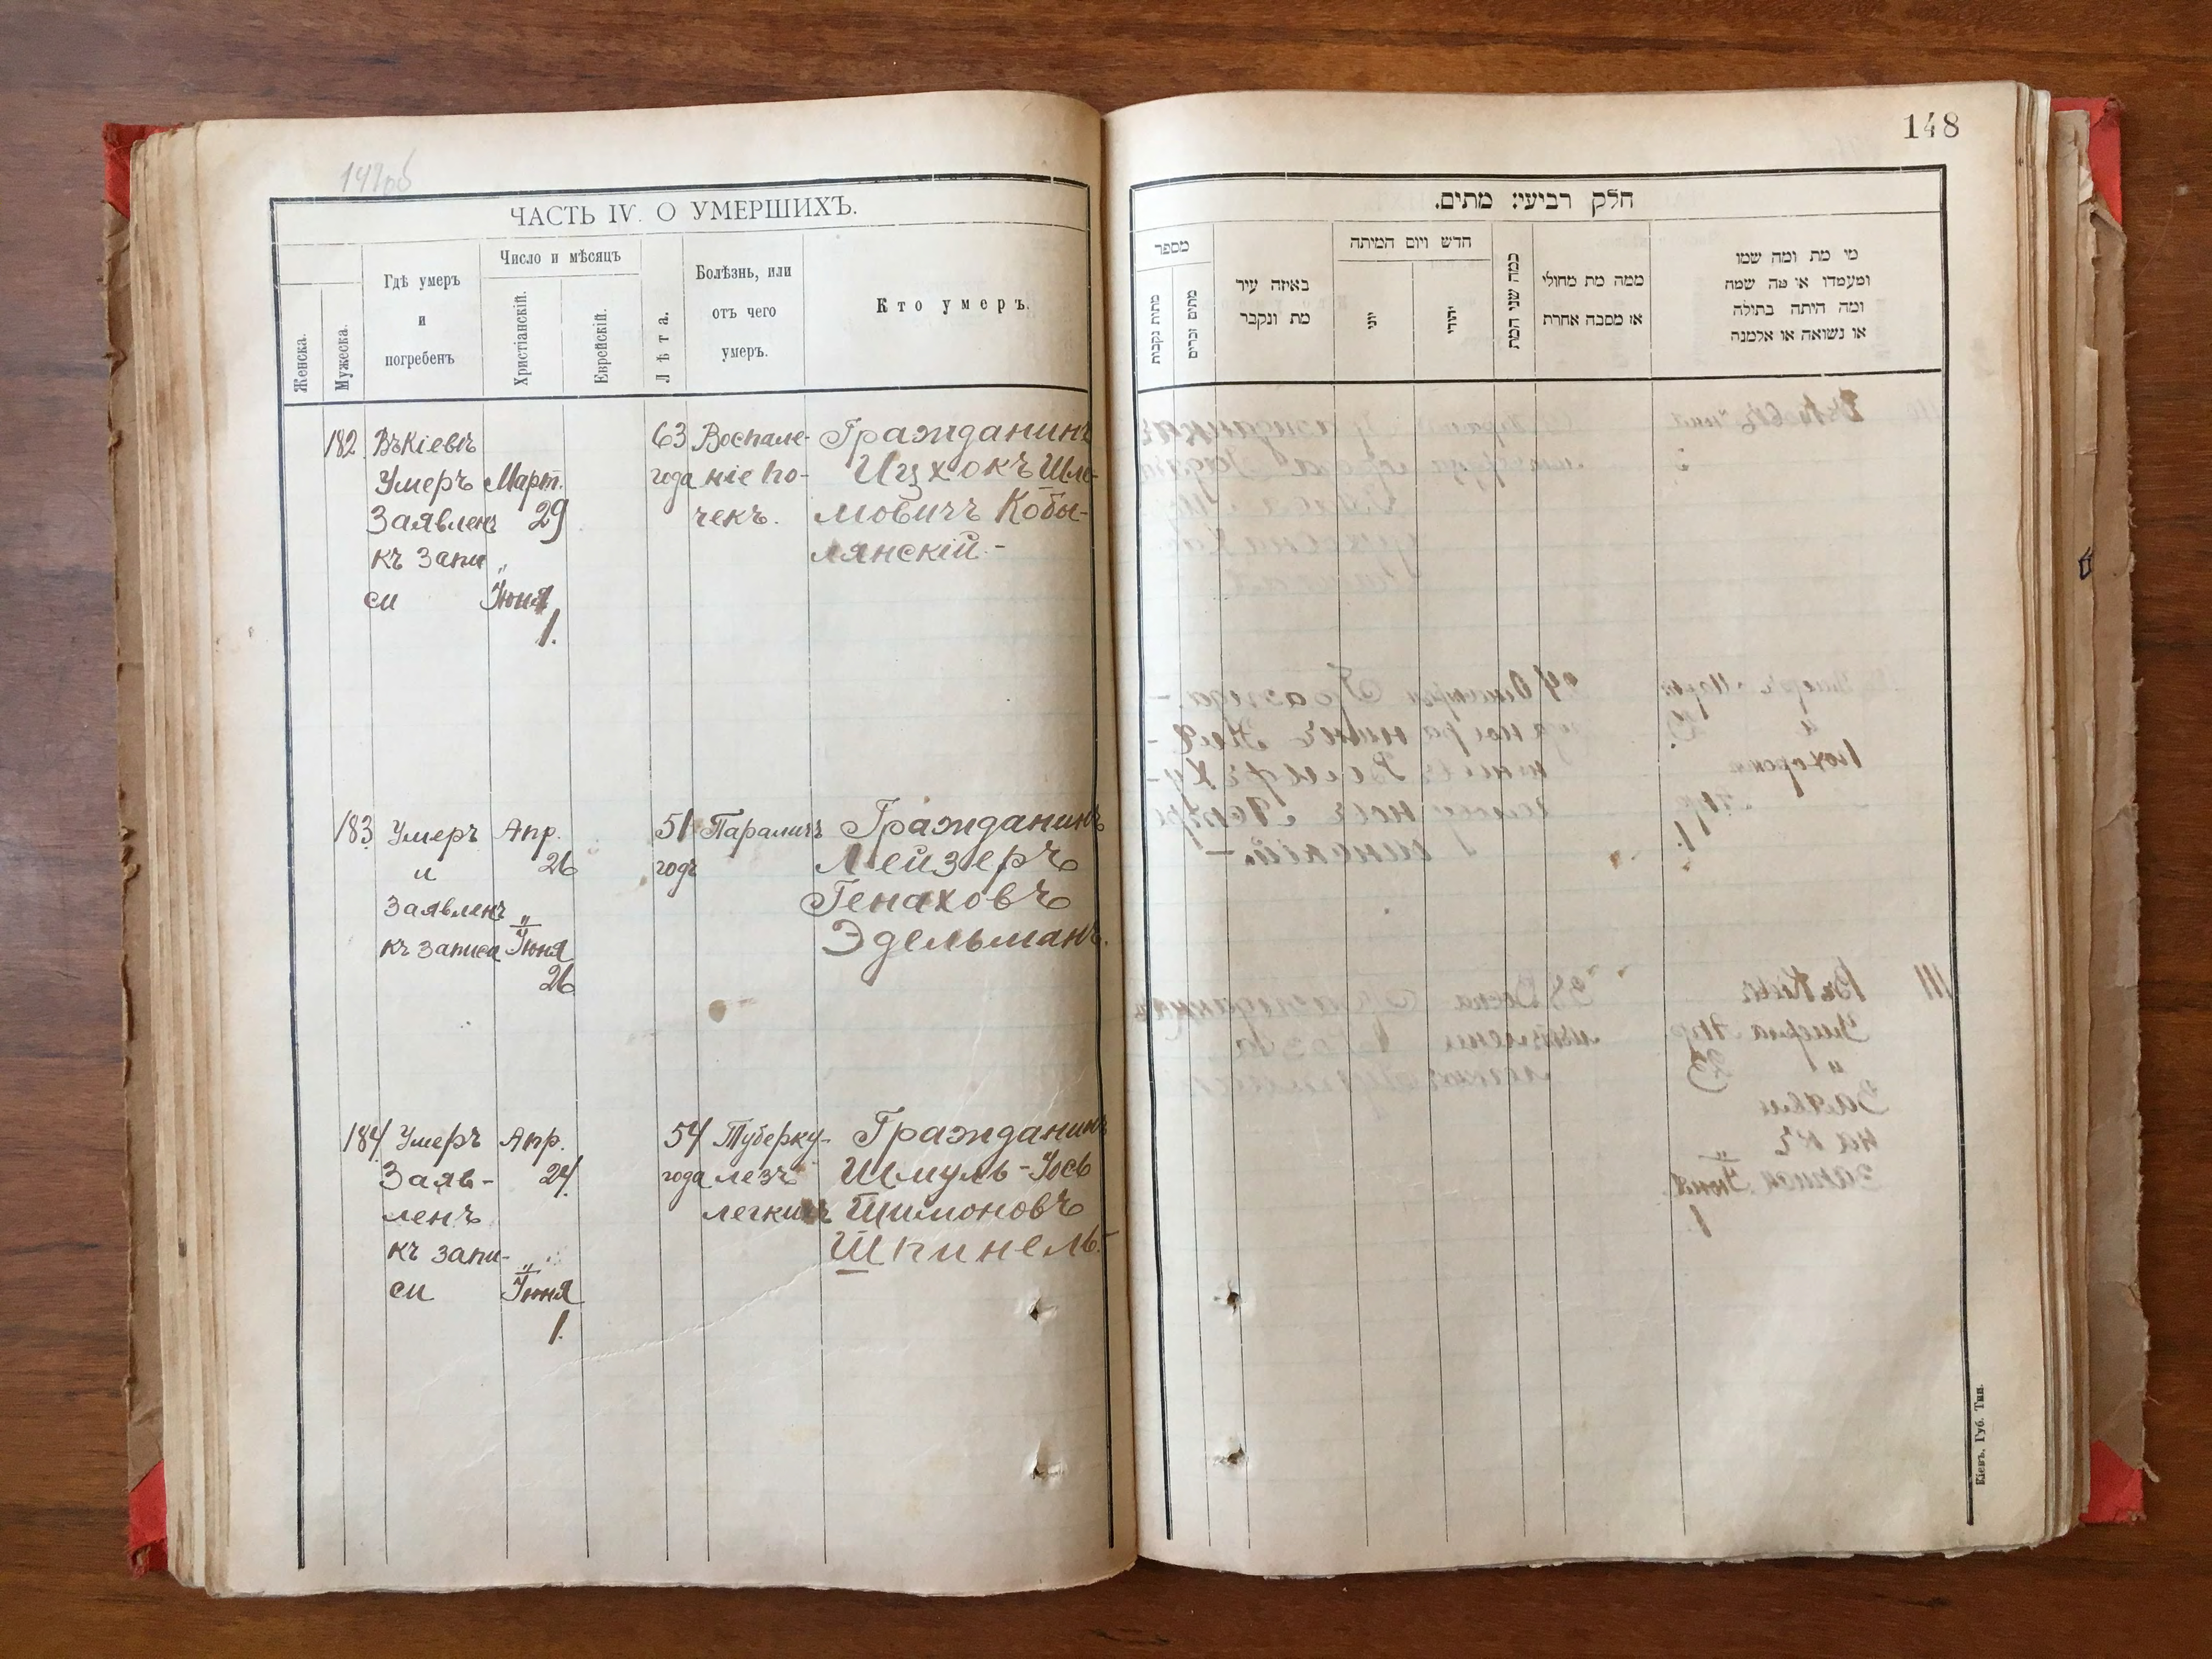 148
ЧАСТЬ IV. О УМЕРШИХЪ.
Женска.
Мужеска.
Гдѣ умеръ
и
погребенъ
Число и мѣсяцъ
Христіанскій.
Еврейскій.
Лѣта.
Болѣзнь, или
отъ чего
умеръ.
Кто умеръ.
182 Въ Кіевѣ 63 Воспале- Гражданинъ
Умеръ Март. года ніе по- Ицхокъ Шле-
Заявленъ 29 чекъ. мовичъ Кобы-
къ Запи „ лянскій.-
си Іюня
1.
183 Умеръ Апр. 51 Параличъ Гражданинъ
и 26 годъ Лейзеръ
Заявленъ „ Генаховъ
къ записи Іюня Эдельманъ.
26
184 Умеръ Апр. 54 Туберку- Гражданинъ
Заяв- 24 года лезъ Шмуль-Іось
ленъ легкихъ Шимоновъ
къ запи- „ Шпинель.-
си Іюня
1.
חלק רביעי: מתים.
מספר
מתות נקבות
מתים זכרים
באיזה עיר
מת ונקבר
חדש ויום המיתה
יוני
יהודי
כמה שני המת
ממה מת מחולי
או מסבה אחרת
מי מת ומה שמו
ומעמדו או מה שמה
ומה היתה בתולה
או נשואה או אלמנה
Кіевъ, Губ. Тип.